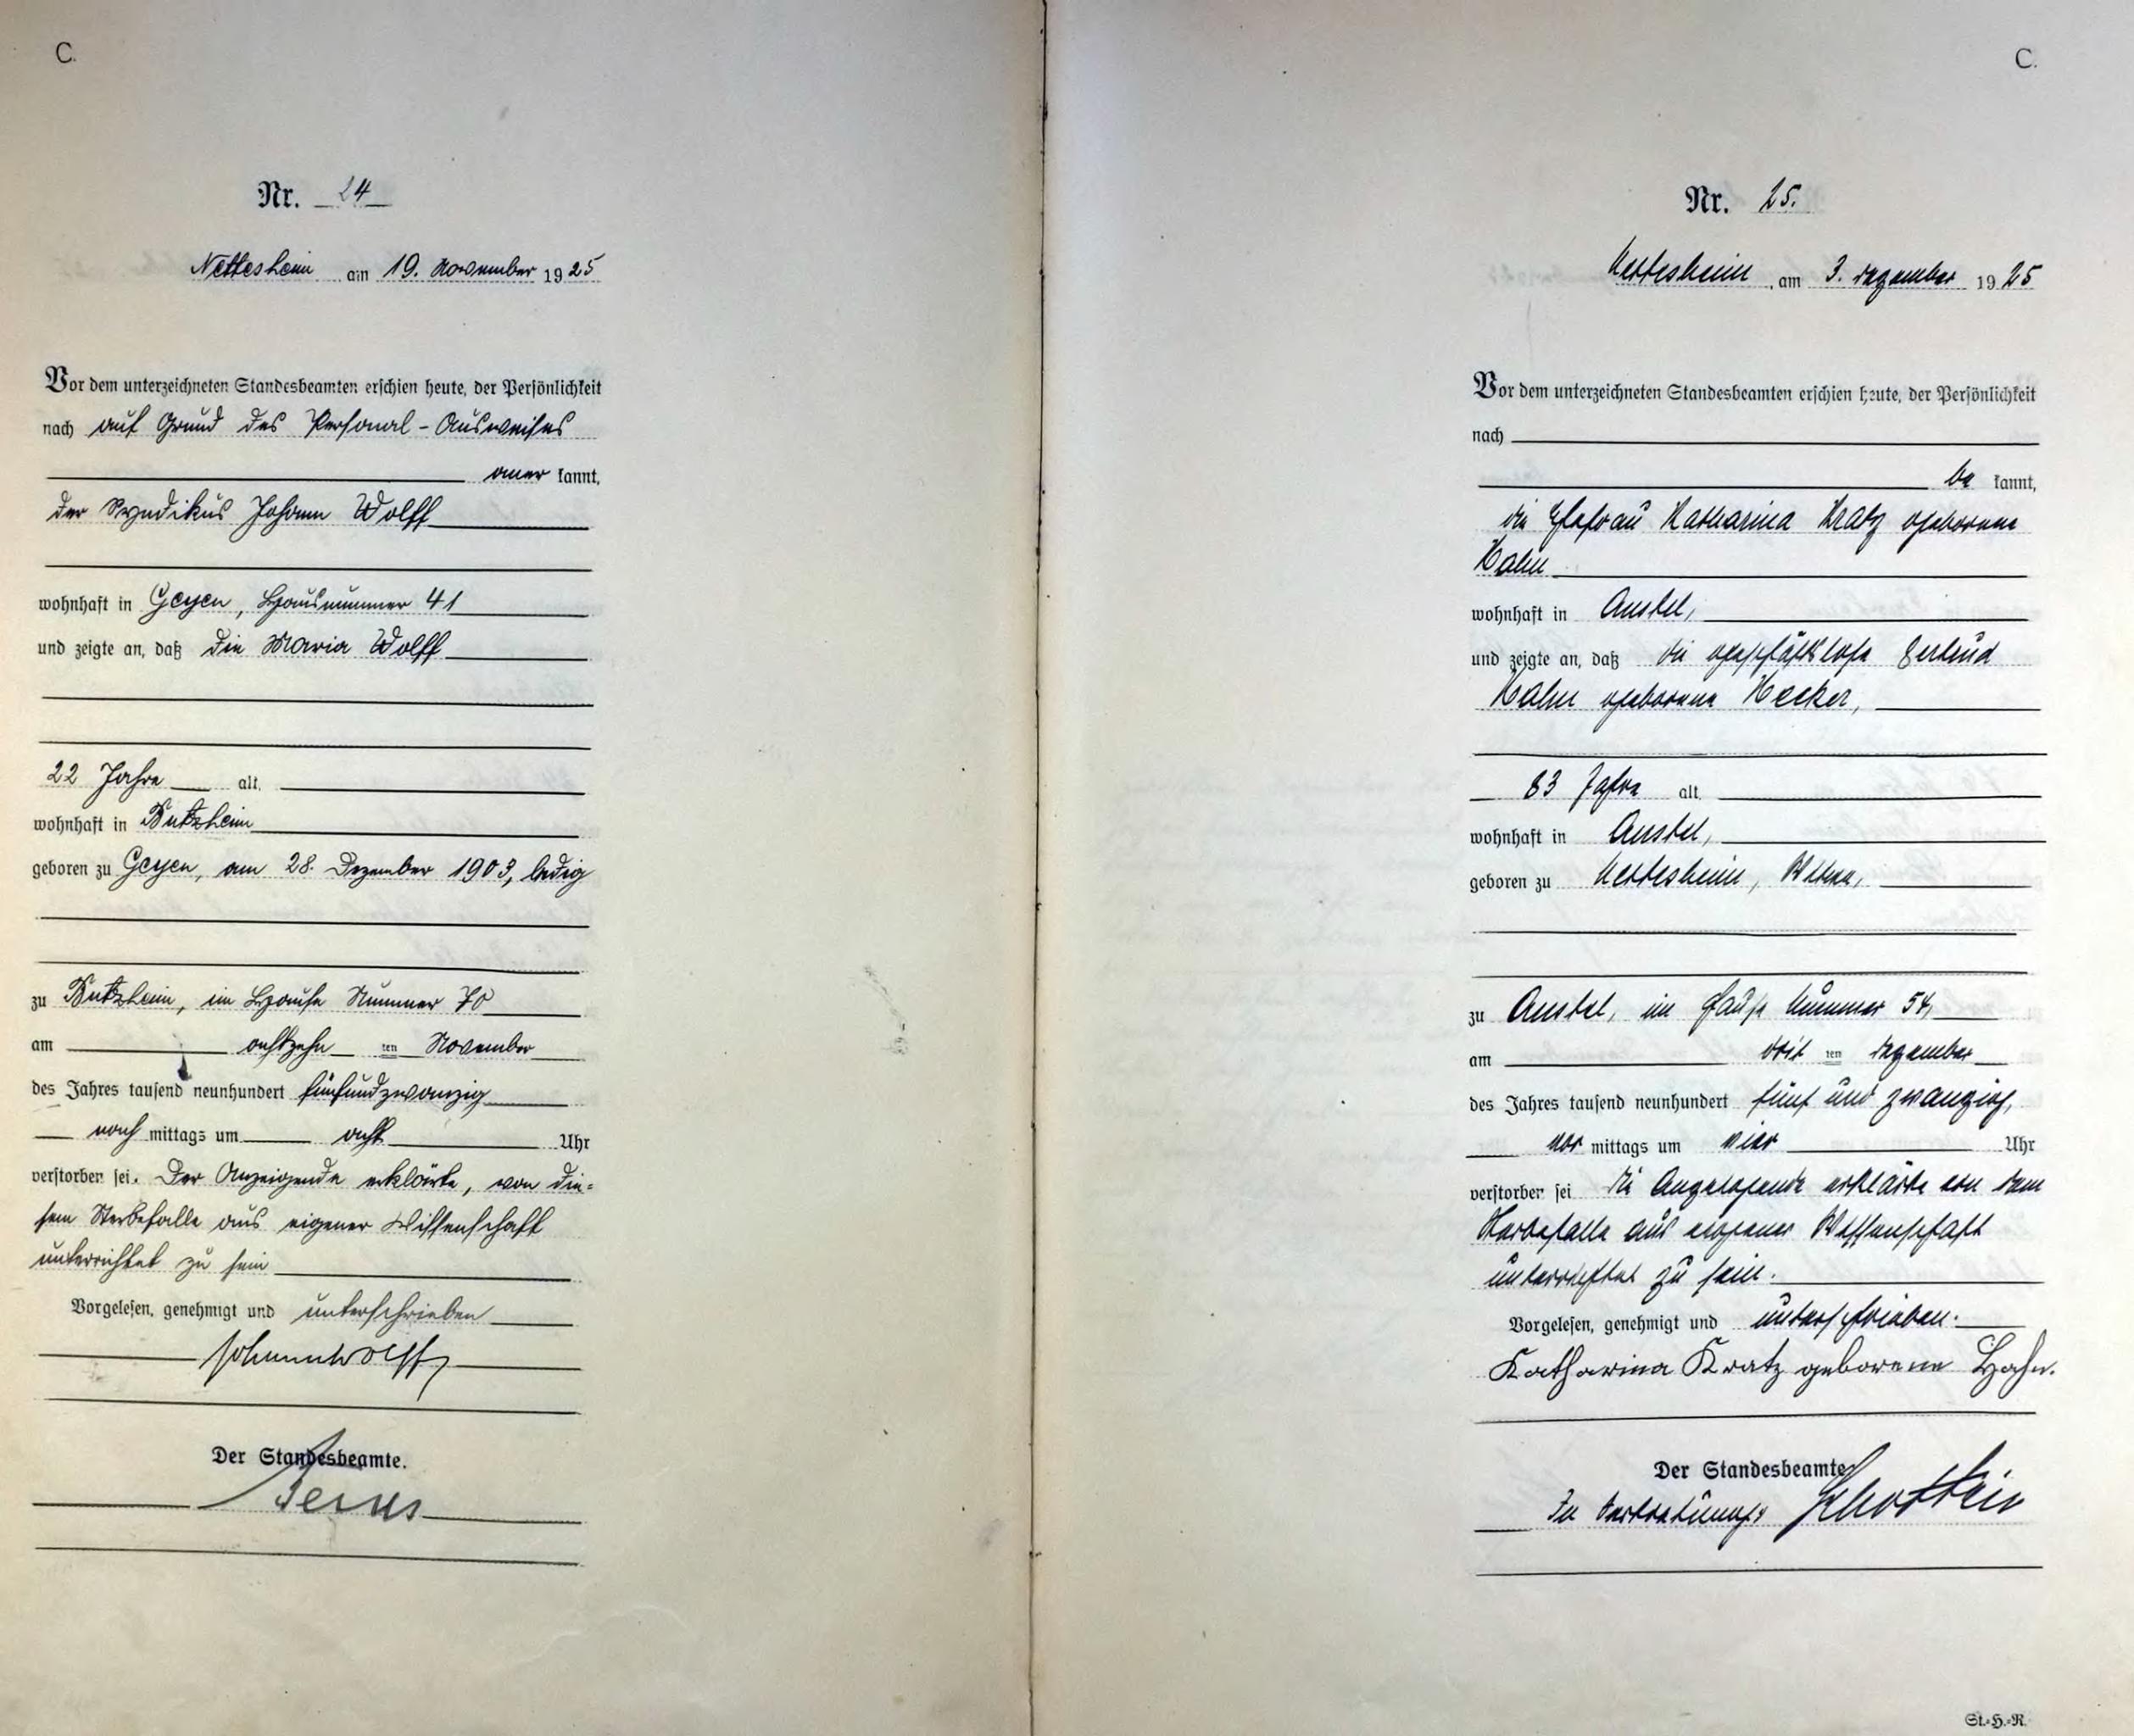 C.
Nr. 24
Nettesheim am 19. November 1925
Vor dem unterzeichneten Standesbeamten erschien heute, der Persönlichkeit
nach auf Grund des Personal-Ausweises
aner kannt,
der Syndikus Johann Wolff
wohnhaft in Geyen, Hausnummer 41
und zeigte an, daß die Maria Wolff
22 Jahre alt,
wohnhaft in Butzheim
geboren zu Geyen, am 28. Dezember 1903, ledig
zu Butzheim, im Hause Nummer 70
am achtzehn ten November
des Jahres tausend neunhundert fünfundzwanzig
nach mittags um acht Uhr
verstorben sei. Der Anzeigende erklärte, von die=
sem Sterbefalle aus eigener Wissenschaft
unterrichtet zu sein
Vorgelesen, genehmigt und unterschrieben
Johann Wolff
Der Standesbeamte.
C.
Nr. 25.
Nettesheim, am 3. Dezember 1925
Vor dem unterzeichneten Standesbeamten erschien heute, der Persönlichkeit
nach
be kannt,
die Ehefrau Katharina Kratz geborene
Hahn
wohnhaft in Anstel,
und zeigte an, daß die geschäftslose Gertrud
Hahn geborene Hecker,
83 Jahre alt,
wohnhaft in Anstel,
geboren zu Nettesheim, Witwe,
zu Anstel, im Hause Nummer 54,
am drit ten Dezember
des Jahres tausend neunhundert fünf und zwanzig,
vor mittags um vier Uhr
verstorben sei Die Anzeigende erklärte von dem
Sterbefalle aus eigener Wissenschaft
unterrichtet zu sein.
Vorgelesen, genehmigt und unterschrieben.
Katharina Kratz geborene Hahn.
Der Standesbeamte
In Vertretung:
St.=H.=R.